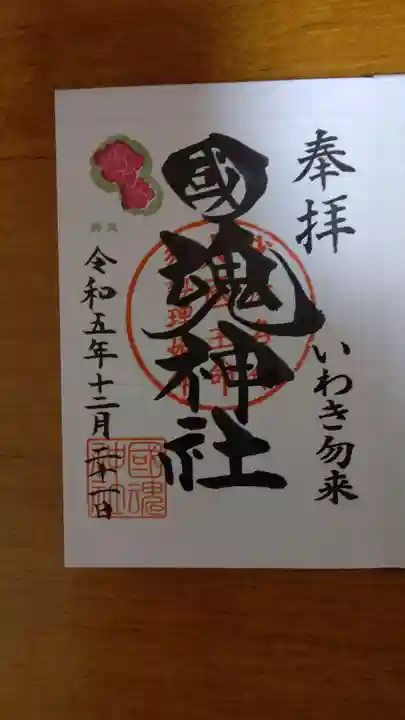 奉拝
いわき勿来
國魂神社
令和五年十二月二十一日
國魂
神社